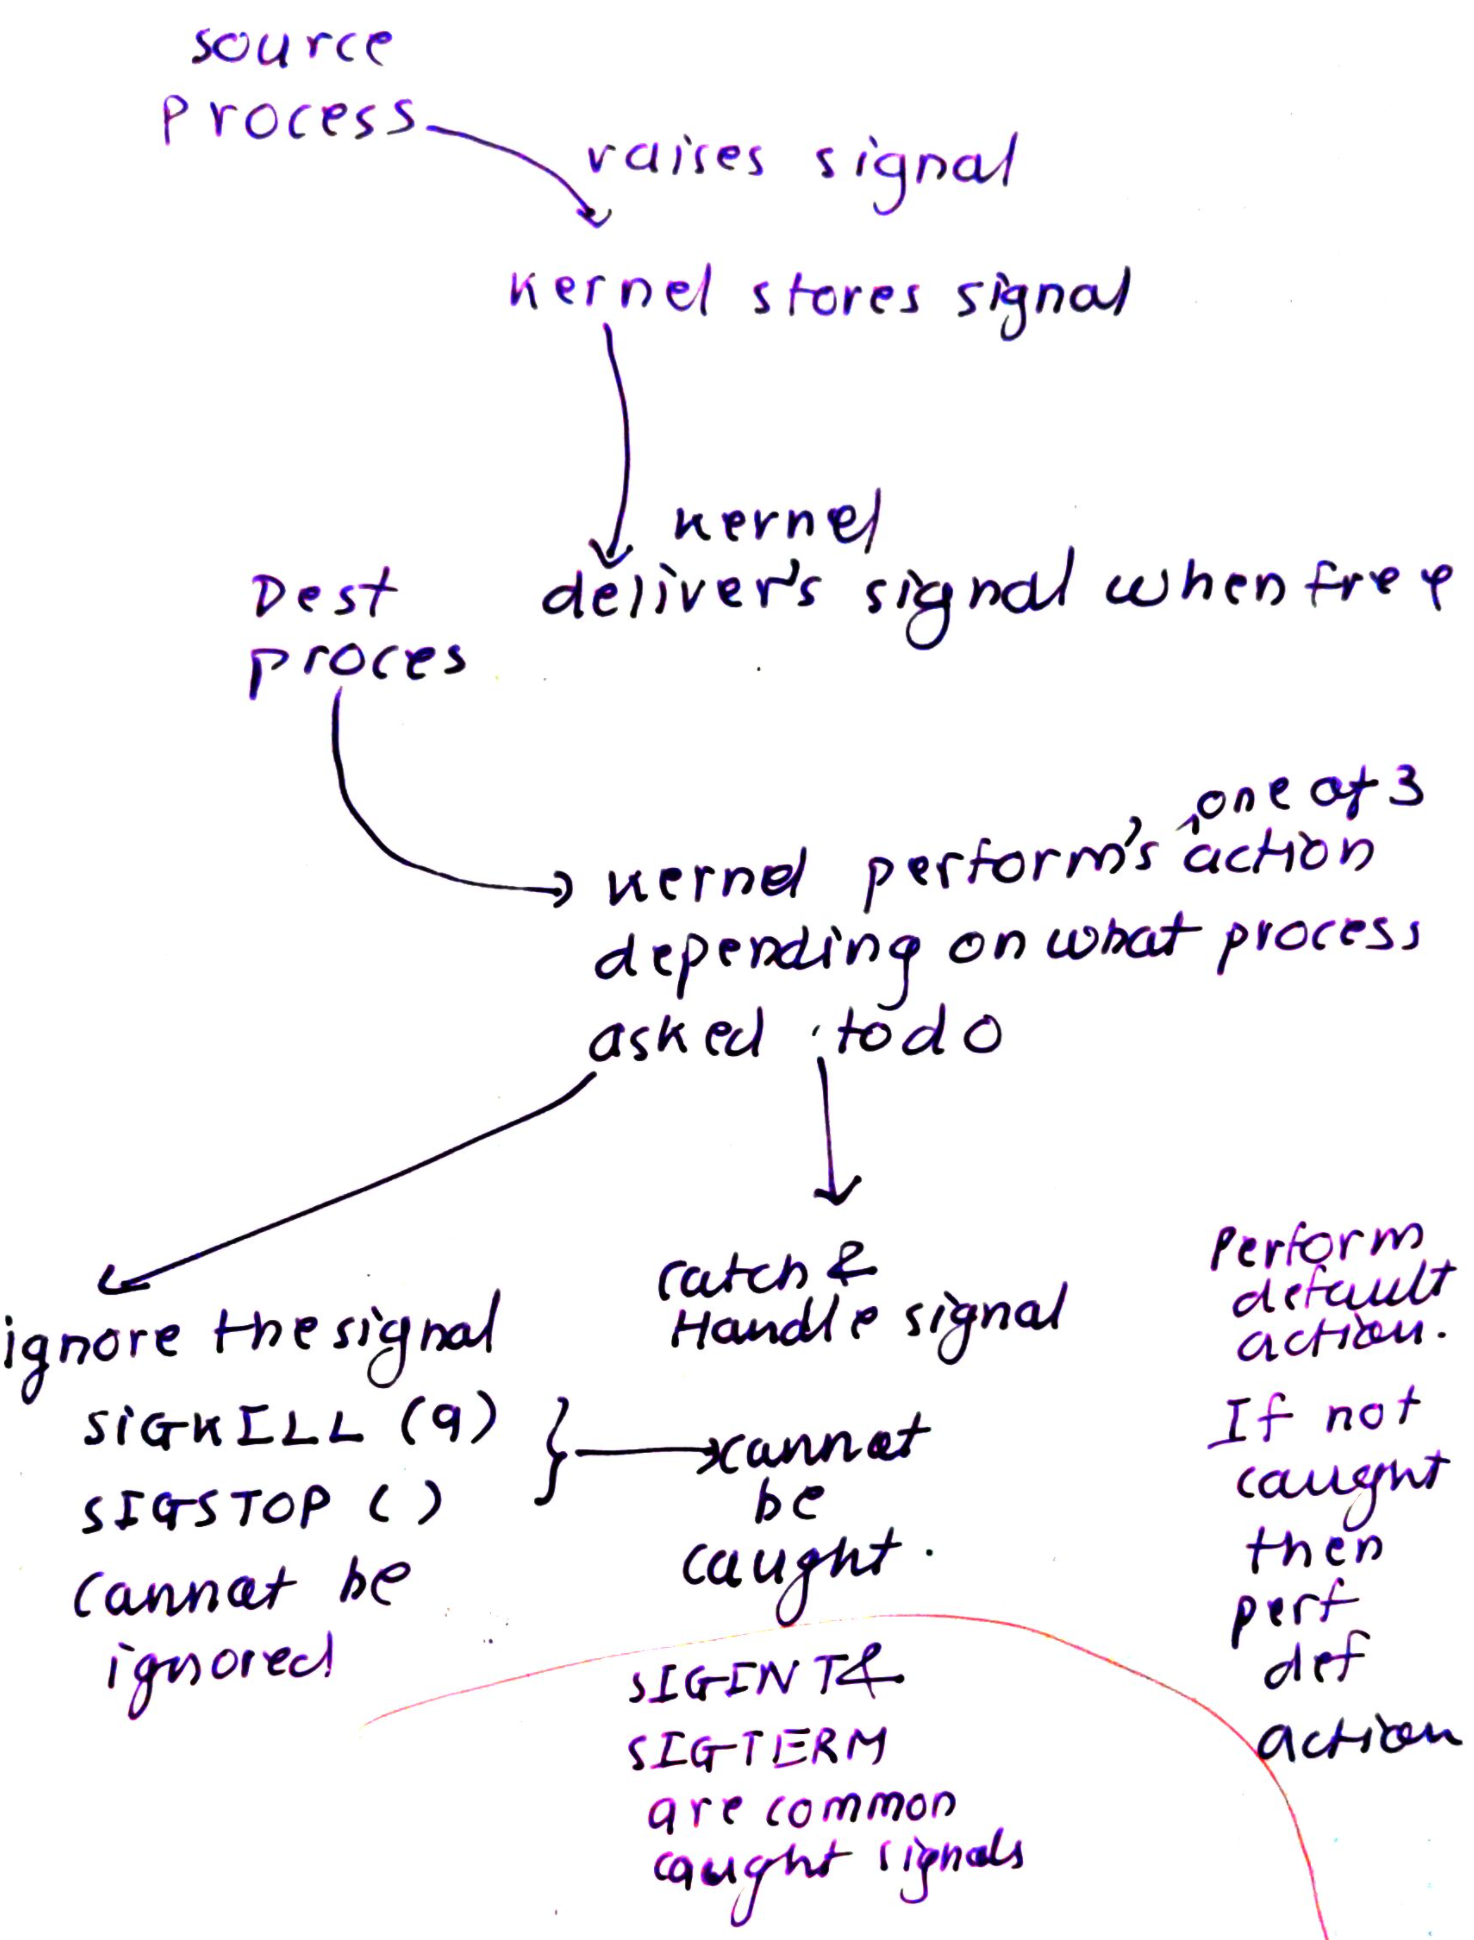 source
process
raises signal
kernel stores signal
kernel
deliver's signal when free
Dest
proces
one of 3
kernel perform's action
depending on what process
asked to do
ignore the signal
SIGKILL (9)
SIGSTOP ( )
cannot be
ignored
catch &
Handle signal
cannot
be
caught.
SIGINT &
SIGTERM
are common
caught signals
Perform
default
action.
If not
caught
then
perf
def
action